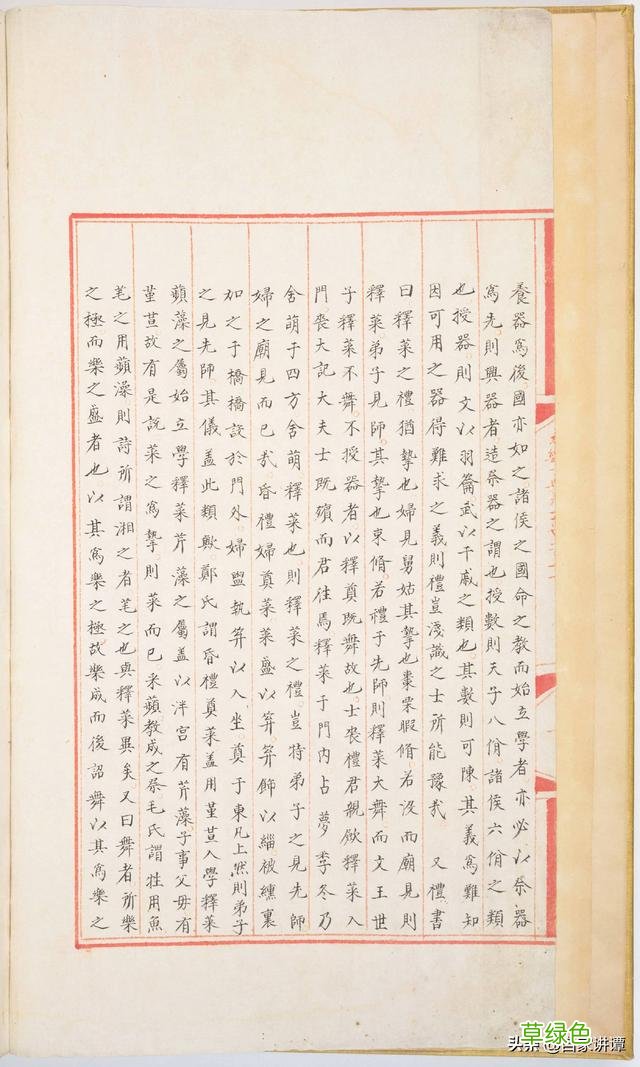 養器為後國亦如之諸侯之國命之教而始立學者亦必以祭器
為先則興器者造祭器之謂也授數則天子八佾諸侯六佾之類
也授器則文以羽籥武以干戚之類也其數則可陳其義為難知
因可用之器得難求之義則禮豈淺識之士所能豫哉 又禮書
曰釋菜之禮猶摯也婦見舅姑其摯也棗栗腶脩若沒而廟見則
釋菜弟子見師其摯也束脩若禮于先師則釋菜大舞而文王世
子釋菜不舞不授器者以釋奠既舞故也士喪禮君親斂釋菜入
門喪大記大夫士既殯而君往焉釋菜于門內占夢季冬乃
舍萌于四方舍萌釋菜也則釋菜之禮豈特弟子之見先師
婦之廟見而已哉昏禮婦奠菜菜盛以笲笲飾以緇被纁裏
加之于橋橋設於門外婦盥執笲以入坐奠于東几上然則弟子
之見先師其儀蓋此類歟鄭氏謂昏禮奠菜蓋用堇荁入學釋菜
蘋藻之屬始立學釋菜芹藻之屬蓋以泮宮有芹藻子事父母有
堇荁故有是說菜之為摯則菜而已采蘋教成之祭毛氏謂牲用魚
芼之用蘋藻則詩所謂湘之者芼之也與釋菜異矣又曰舞者所樂
之極而樂之盛者也以其為樂之極故樂成而後詔舞以其為樂之
草绿色
头条@百家讲谭